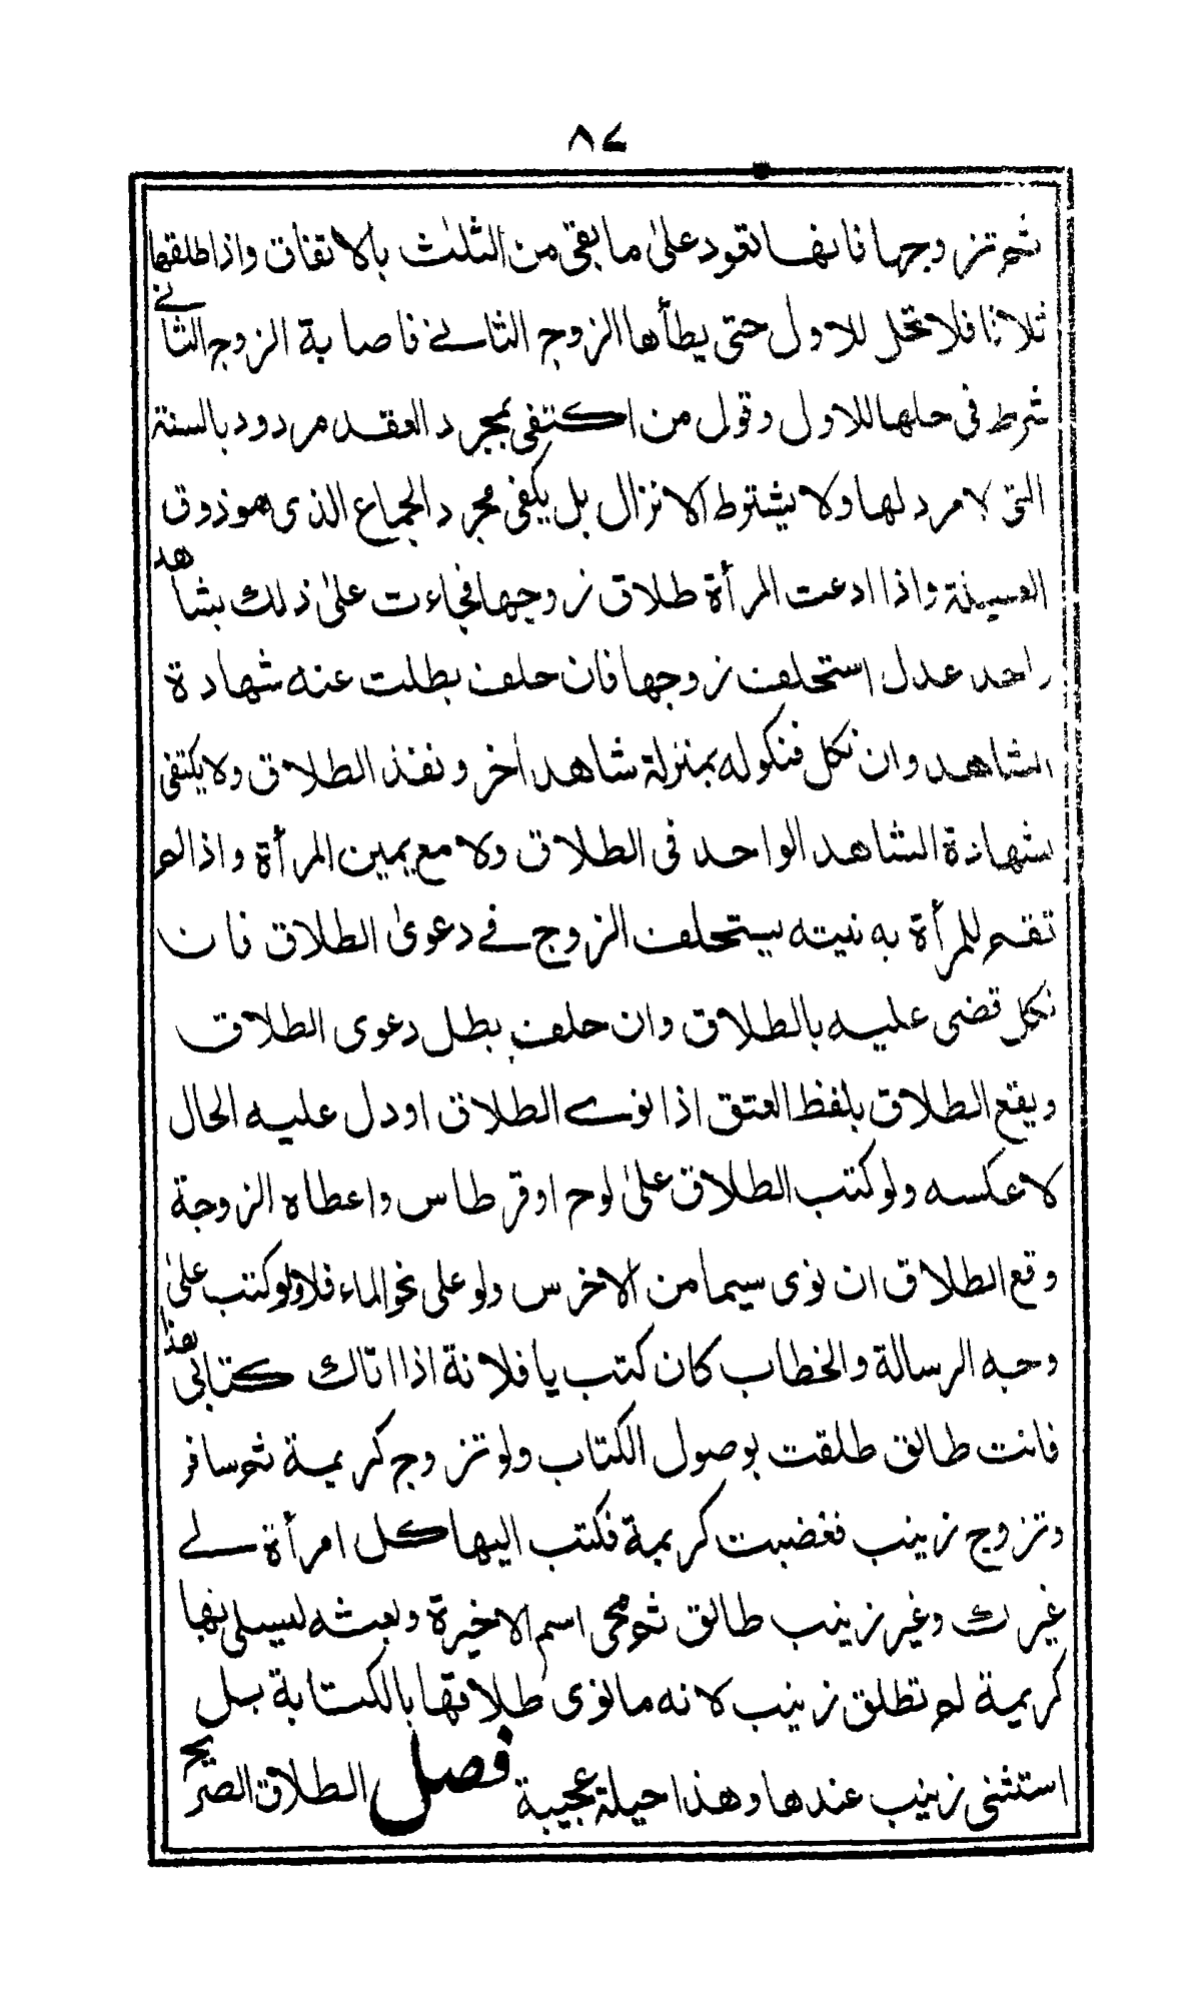 ٨٤
ثم تزوجها فانها تعود على ما بقى من الثلٰث بالاتفاق واذا طلقها
ثلاثا فلا تحل للاول حتى يطأها الزوج الثانے فاصابة الزوج الثانے
شرط فى حلها للاول وقول من اكتفى بمجرد العقد مردود بالسنة
التى لا مرد لها ولا يشترط الانزال بل يكفى مجرد الجماع الذى هو ذوق
العسيلة واذا ادعت المرأة طلاق زوجها فجاءت علىٰ ذلك بشاهد
واحد عدل استحلف زوجها فان حلف بطلت عنه شهادة
الشاهد وان نكل فنكوله بمنزلة شاهد اٰخر ونفذ الطلاق ولا يكتفى
بشهادة الشاهد الواحد فى الطلاق ولا مع يمين المرأة واذا لم
تقم للمرأة به نيته يستحلف الزوج فے دعوىٰ الطلاق فان
نكل قضى عليه بالطلاق وان حلف بطل دعوى الطلاق
ويقع الطلاق بلفظ العتق اذا نوے الطلاق او دل عليه الحال
لا عكسه ولو كتب الطلاق علىٰ لوح او قرطاس واعطاه الزوجة
وقع الطلاق ان نوى سيما من الاخرس ولو على نحو الماء فلا ولو كتب علىٰ
وجه الرسالة والخطاب كان كتب يا فلانة اذا اتاك كتابى هذا
فانت طالق طلقت بوصول الكتاب ولو تزوج كريمة ثم سافر
وتزوج زينب فغضبت كريمة فكتب اليها كل امرأة لے
غيرك وغير زينب طالق ثم محى اسم الاخيرة وبعثه ليسلى بها
كريمة لم تطلق زينب لانه ما نوى طلاقها بالكتابة بل
استثنى زينب عندها وهذا حيلة عجيبة فصل الطلاق الصريح